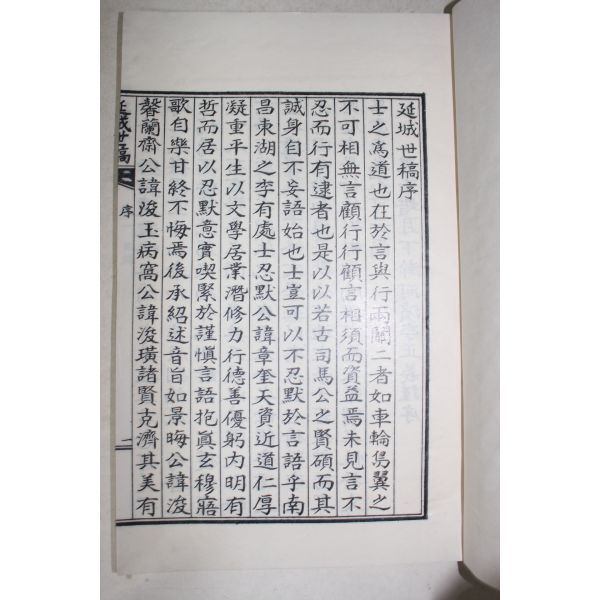 延城世稿序
士之為道也在於言與行兩關二者如車輪鳥翼之
不可相無言顧行行顧言相須而資益焉未見言不
忍而行有逮者也是以以若古司馬公之賢碩而其
誠身自不妄語始也士豈可以不忍默於言語乎南
昌東湖之李有處士忍默公諱章奎天資近道仁厚
凝重平生以文學居業潛修力行德善優躬內明有
哲而居以忍默意實喫緊於謹愼言語抱眞玄穆寤
歌自樂甘終不悔焉後承紹述音旨如景晦公諱浚
馨蘭齋公諱浚玉病窩公諱浚璜諸賢克濟其美有
延城世稿
序
一